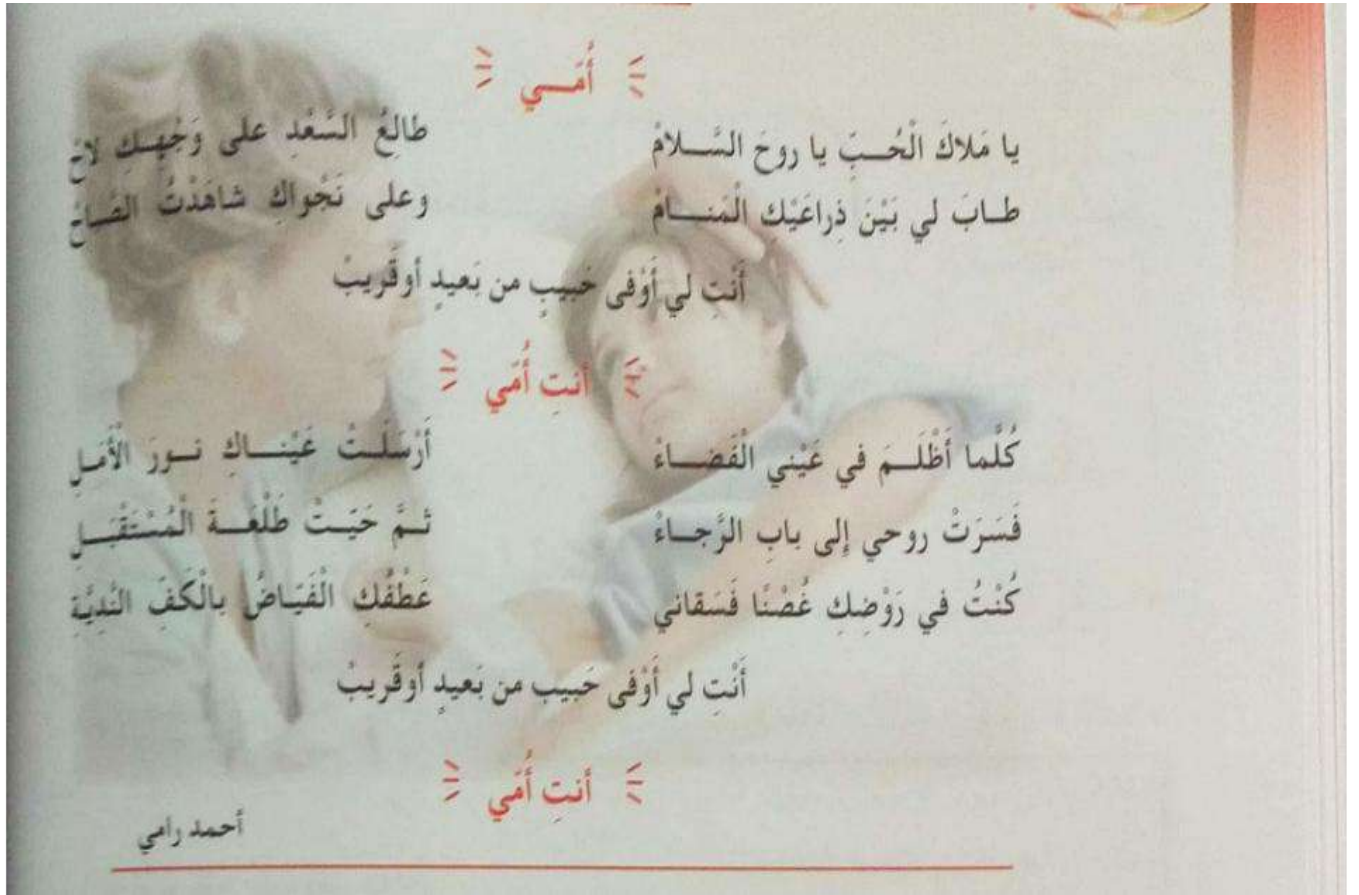 أُمّـــي
يا مَلاكَ الْحُــبِّ يا روحَ السَّــلامْ طالِعُ السَّعْدِ على وَجْهِـكِ لاحْ
طــابَ لي بَيْنَ ذِراعَيْكِ الْمَنــامْ وعلى نَجْواكِ شاهَدْتُ الصَّباحْ
أَنْتِ لي أَوْفى حَبيبٍ من بَعيدٍ أوقَريبْ
أنتِ أُمّي
كُلَّما أَظْلَــمَ في عَيْني الْفَضــاءْ أَرْسَلَــتْ عَيْنــاكِ نــورَ الْأَمَـلِ
فَسَرَتْ روحي إِلى بابِ الرَّجــاءْ ثــمَّ حَيّــتْ طَلْعَــةَ الْمُسْتَقْبَــلِ
كُنْتُ في رَوْضِكِ غُصْنًا فَسَقاني عَطْفُكِ الْفَيّـاضُ بالْكَفِّ النَّدِيَّةِ
أَنْتِ لي أَوْفى حَبيب من بَعيدٍ أوقَريبْ
أنتِ أُمّي
أحمد رامي